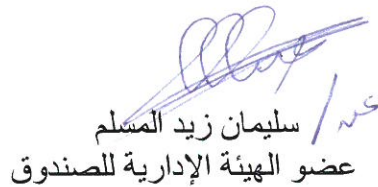 عن/ سليمان زيد المسلم
عضو الهيئة الإدارية للصندوق